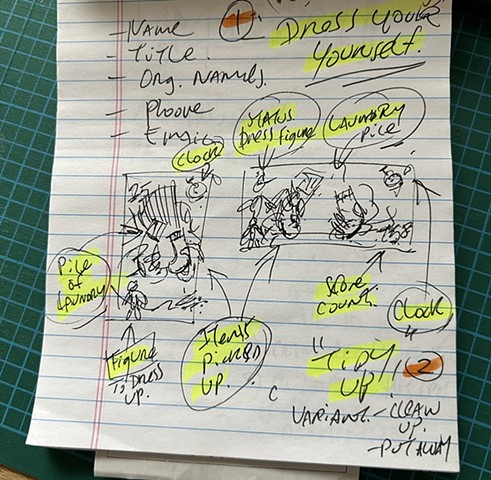 - NAME
1
DRESS
YOURSELF.
- TITLE.
- ORG. NAMES.
- PHONE
- EMAIL
CLOCK
DRESS FIGURE
LAUNDRY
PILE
PILE
OF
LAUNDRY
SCORE
COUNT.
CLOCK
FIGURE
TO DRESS
UP.
ITEMS
PICKED
UP.
"TIDY
UP
"
2
VARIANT - CLEAN
UP.
- PUT AWAY